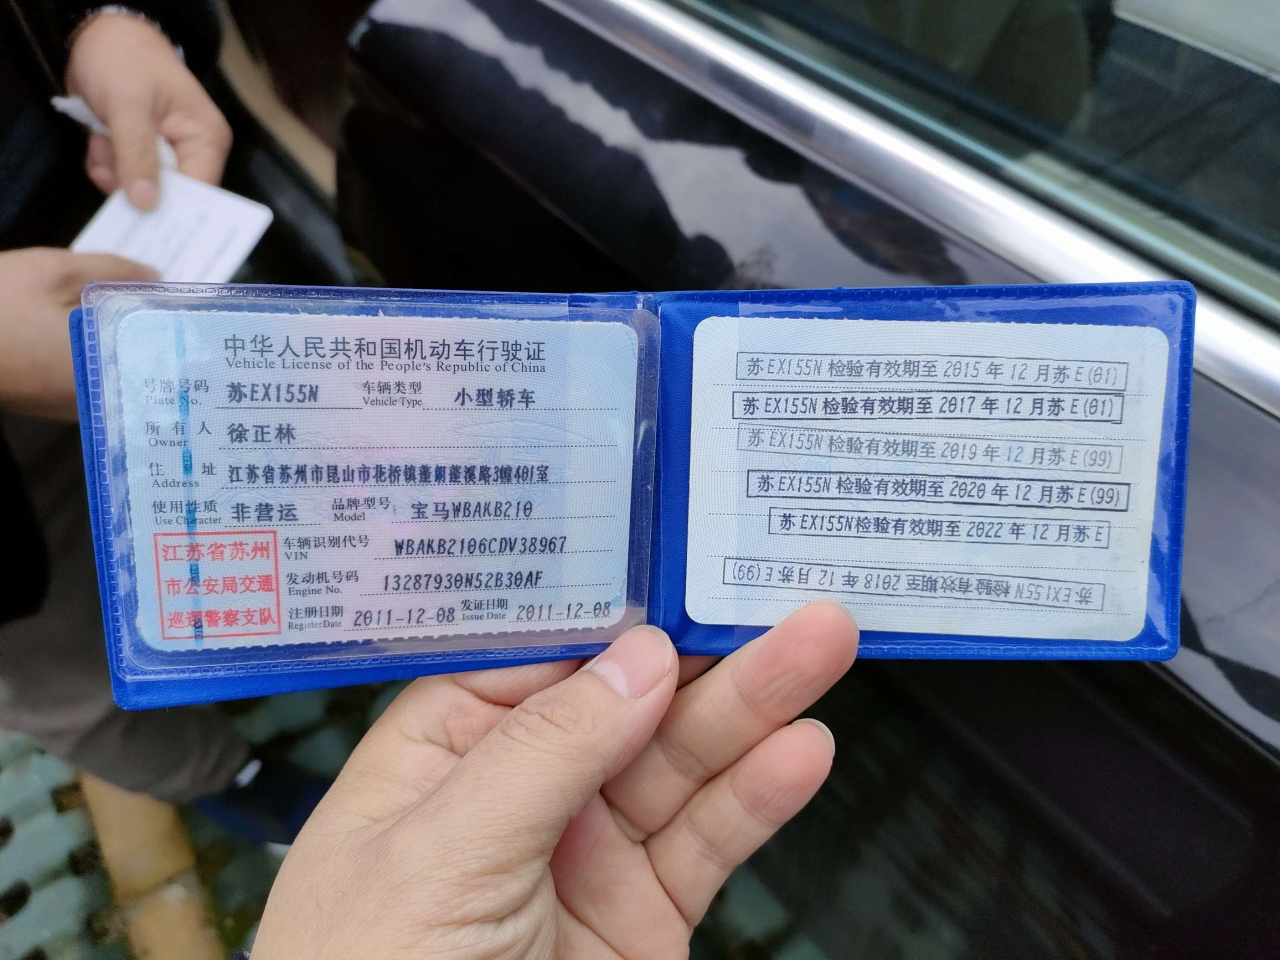 中华人民共和国机动车行驶证
Vehicle License of the People's Republic of China
号牌号码 苏EX155N 车辆类型 小型轿车
Plate No. Vehicle Type
所有人 徐正林
Owner
住址 江苏省苏州市昆山市花桥镇蓬朗蓬溪路3幢401室
Address
使用性质 非营运 品牌型号 宝马WBAKB210
Use Character Model
江苏省苏州
市公安局交通
巡逻警察支队
车辆识别代号 WBAKB2106CDV38967
VIN
发动机号码 13287930N52B30AF
Engine No.
注册日期 2011-12-08 发证日期 2011-12-08
Register Date Issue Date
苏EX155N 检验有效期至 2015 年 12 月苏E(01)
苏EX155N 检验有效期至 2017 年 12 月苏E(01)
苏EX155N 检验有效期至 2019 年 12 月苏E(99)
苏EX155N 检验有效期至 2020 年 12 月苏E(99)
苏EX155N检验有效期至 2022 年 12 月苏E
苏EX155N 检验有效期至 2018 年 12 月苏E(99)